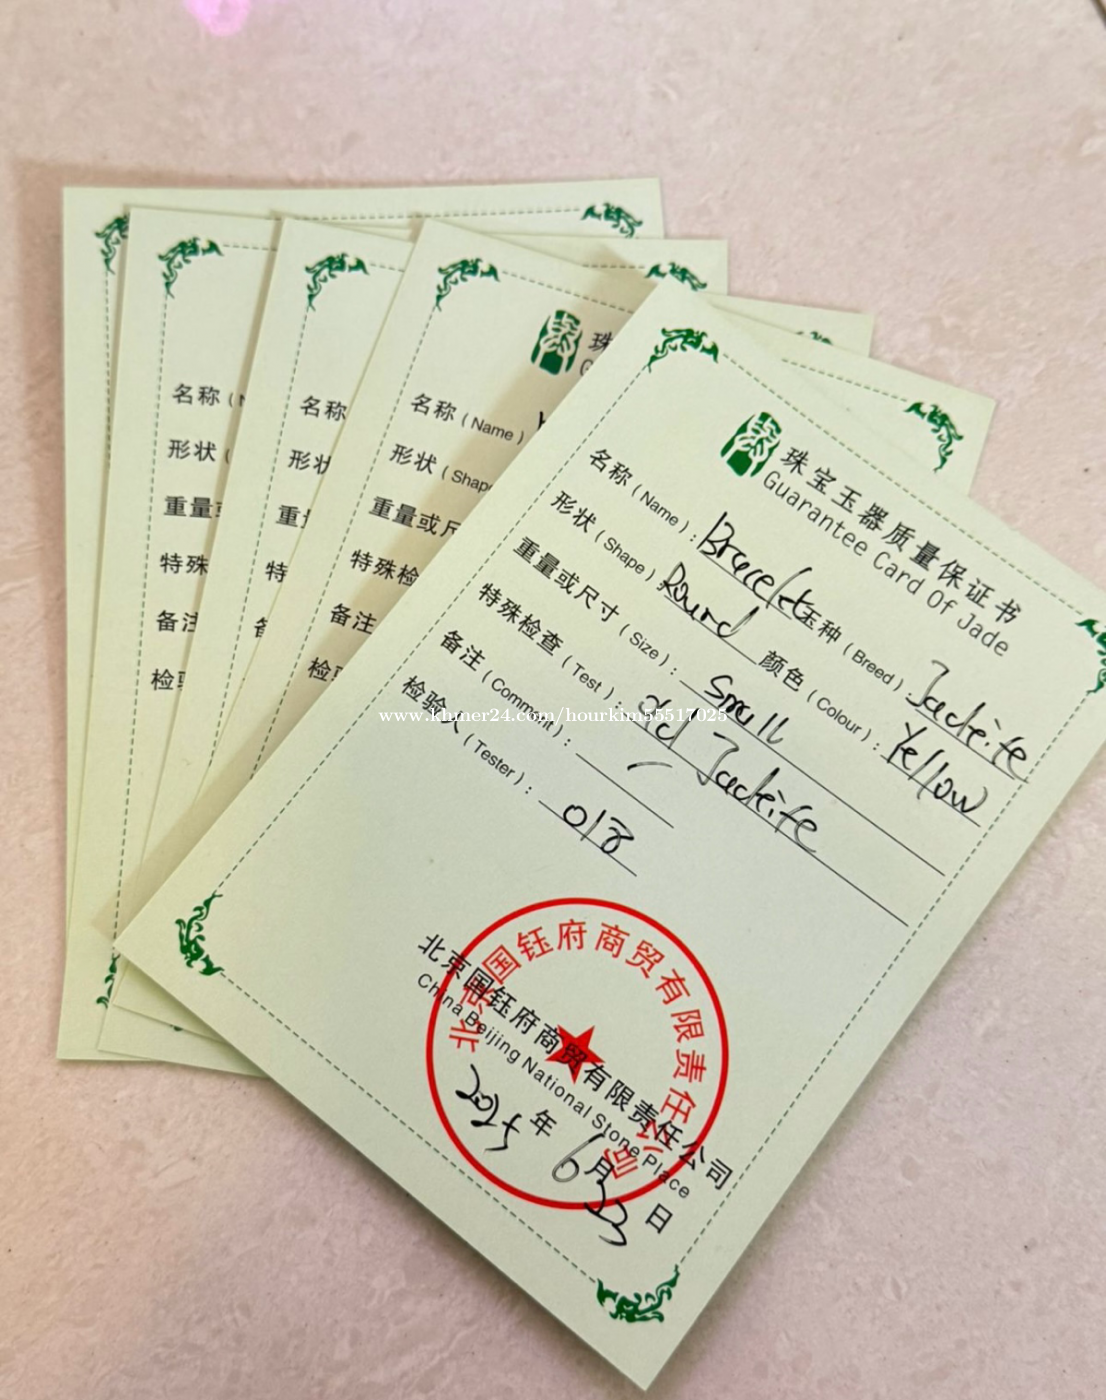 名称
形状
重量
特殊
备注
检
名称
形状
重
特
名称 (Name)
形状 (Shap
重量或尺
特殊检
备注
检验
珠宝玉器质量保证书
Guarantee Card Of Jade
名称 (Name): Bracelet 玉种 (Breed): Jadeite
形状 (Shape): Round 颜色 (Colour): Yellow
重量或尺寸 (Size): Small
特殊检查 (Test): Jadeite
备注 (Comment):
检验人 (Tester):
www.khmer24.com/hourkim55517025
北京国钰府商贸有限责任公司
北京国钰府商贸有限责任公司
China Beijing National Stone Place
年 6 月 23 日